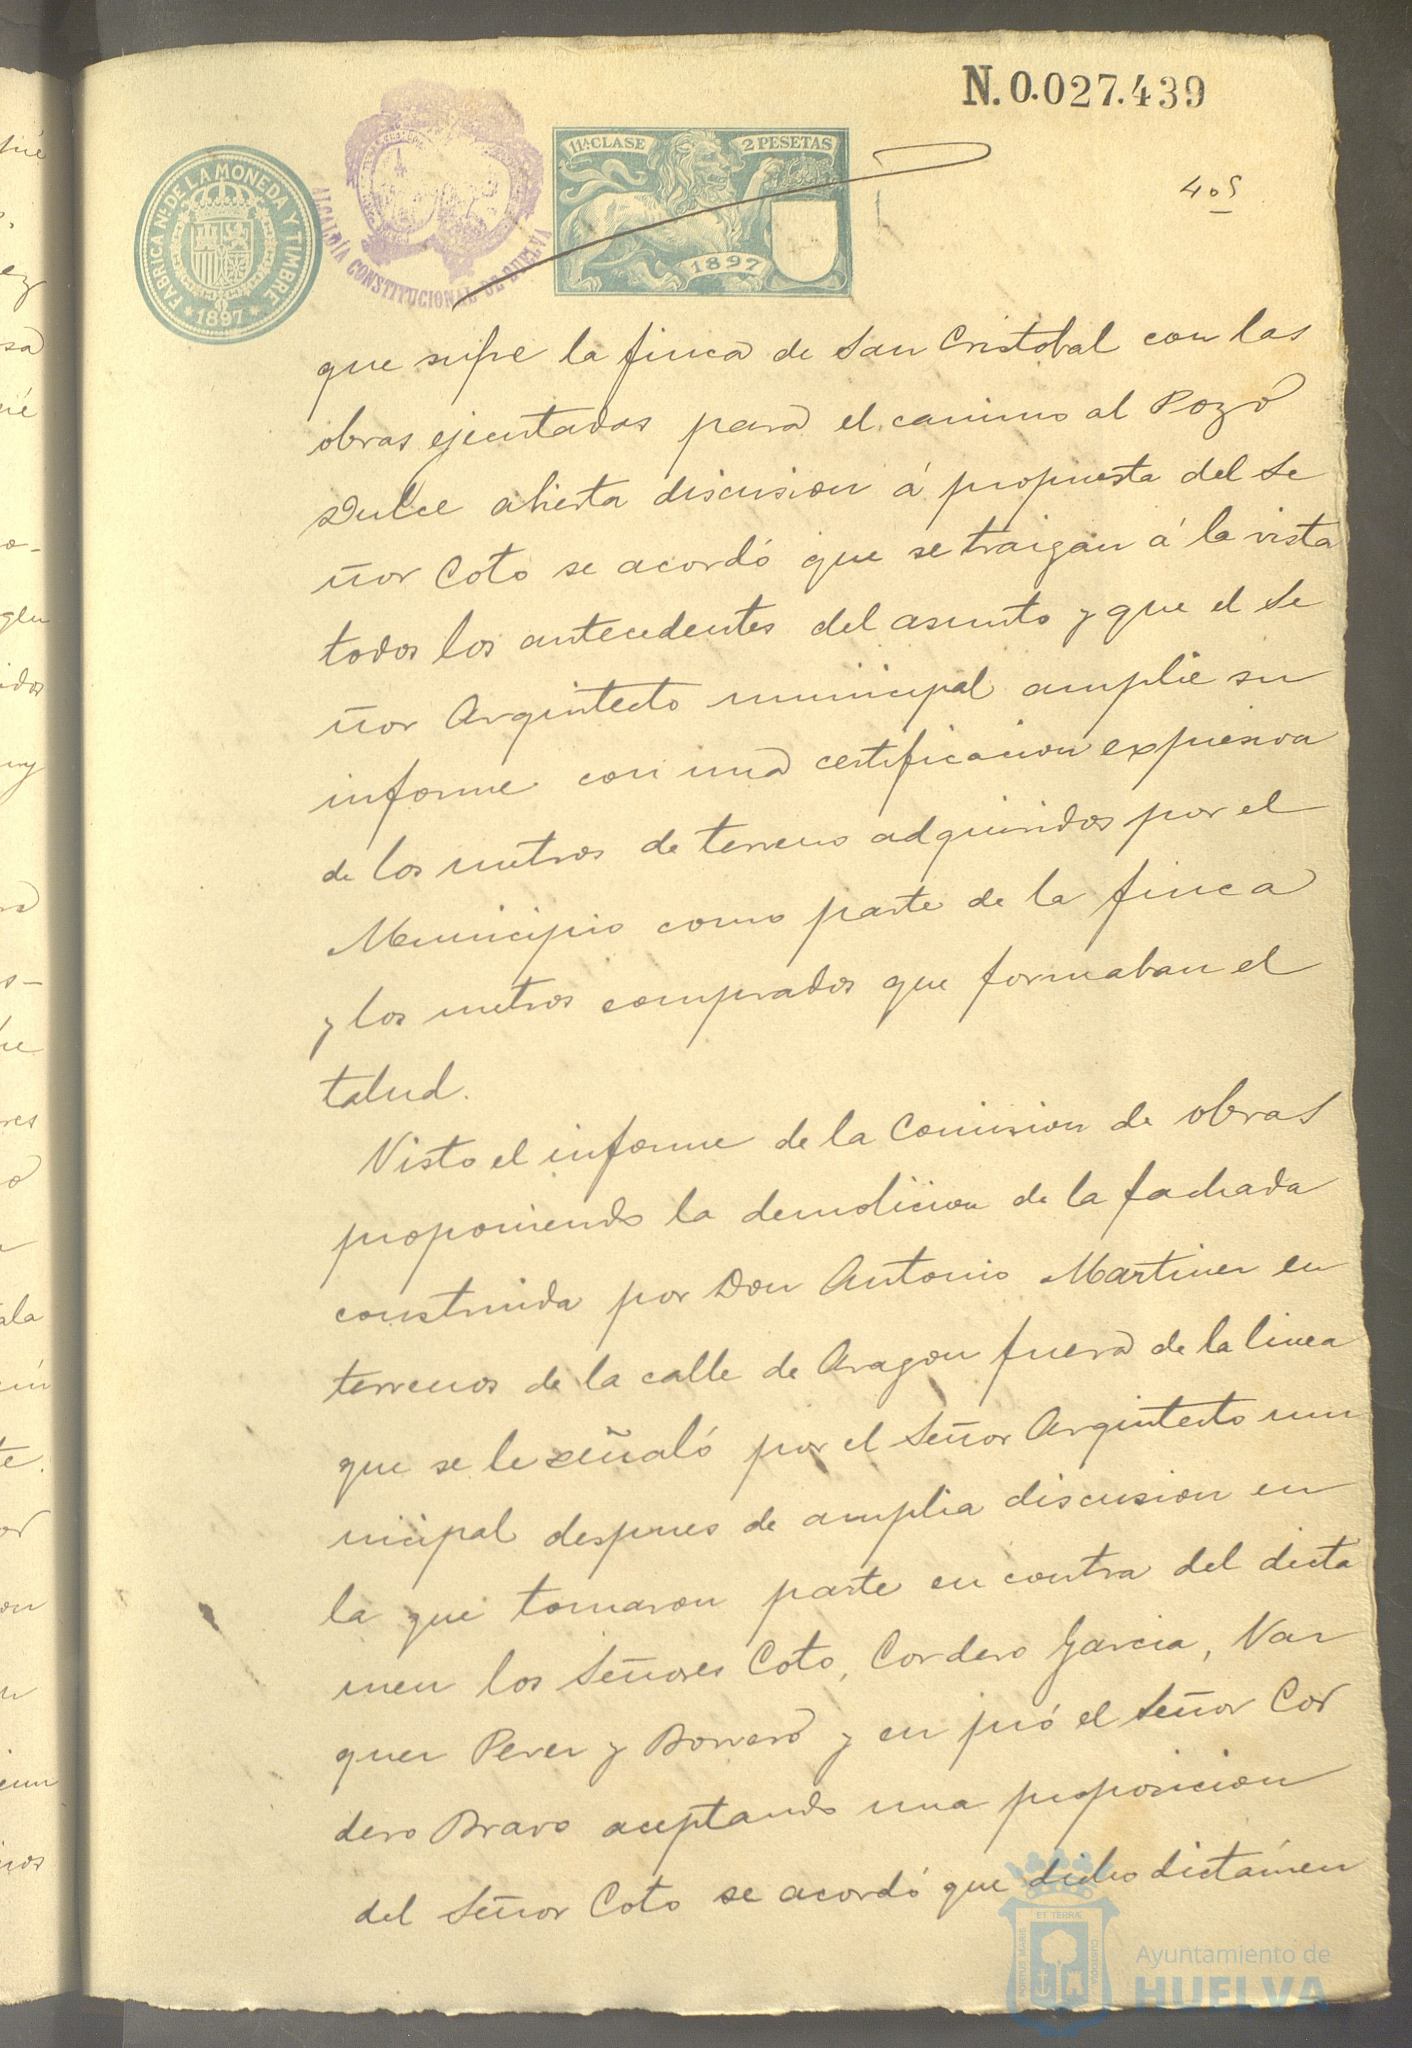 N.0.027.439
FABRICA N.l DE LA MONEDA Y TIMBRE
1897
ALCALDÍA CONSTITUCIONAL DE HUELVA
11ª CLASE
2 PESETAS
1897
405
que sufre la finca de San Cristobal con las
obras ejecutadas para el camino al Pozo
Dulce abierta discusion á propuesta del Se
ñor Coto se acordó que se traigan á la vista
todos los antecedentes del asunto y que el Se
ñor Arquitecto municipal amplie su
informe con una certificacion expresiva
de los metros de terreno adquiridos por el
Municipio como parte de la finca
y los metros comprados que formaban el
talud.
Visto el informe de la Comision de obras
proponiendo la demolicion de la fachada
construida por Don Antonio Martinez en
terrenos de la calle de Aragon fuera de la linea
que se le señaló por el Señor Arquitecto mu
nicipal despues de amplia discusion en
la que tomaron parte en contra del dicta
men los Señores Coto, Cordero Garcia, Vaz
quez Perez y Borrero y en pró el Señor Cor
dero Bravo aceptando una proposicion
del Señor Coto se acordó que dicho dictámen
PORTUS MARIS
ET TERRÆ
CUSTODIA
Ayuntamiento de
HUELVA